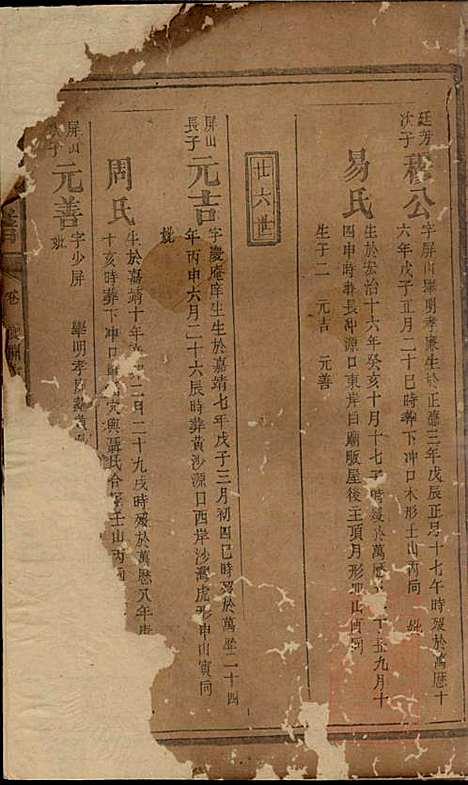 廷芳
次子
公
字屏山舉明孝廉生於正德三年戊辰正月十七午時歿於萬歷十
六年戊子正月二十巳時葬下冲口木形壬山丙同 妣
易氏
生於宏治十六年癸亥十月十七子時歿於萬歷 十五九月十
四申時葬長冲源口東岸白廟販屋後主頂月形 山 同
生子二 元吉 元善
廿六世
屏山
長子
元吉
字慶庵庠生生於嘉靖七年戊子三月初四巳時歿於萬歷二十四
年丙申六月二十六辰時葬黃沙源口西岸沙灣虎形申山寅同
妣
周氏
生於嘉靖十年 二月二十九戌時歿於萬歷八年
十亥時葬下冲口 元與聶氏合冢壬山丙同
屏山
次子
元善
字少屏 舉明孝
妣